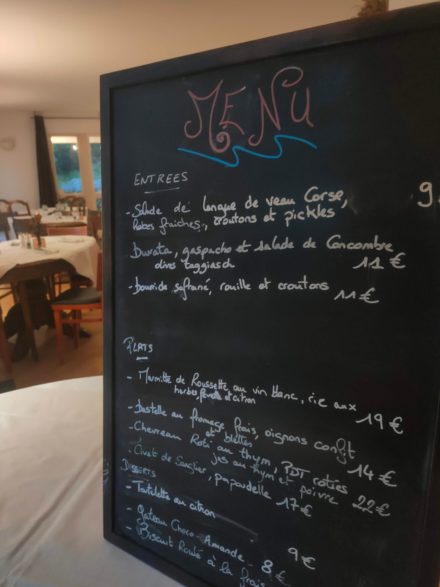 MENU
ENTREES
- Salade de langue de veau Corse,
fraiches, croutons et pickles
9
Burata, gaspacho et salade de Concombre
olives taggiasch
11 €
- Bourride safrané, rouille et croutons
11 €
PLATS
- Marmitte de Roussette au vin blanc, riz aux
herbes, et citron
19 €
- Bastelle au fromage frais, oignons confit
et blettes
14 €
- Chevreau Roti au thym, PDT roties
jus au thym et poivre 22 €
- Civet de Sanglier, papardelle 17 €
Desserts
- Tartelette au citron
9 €
- Gateau Choco-Amande - 8 €
- Biscuit Roulé à la frais